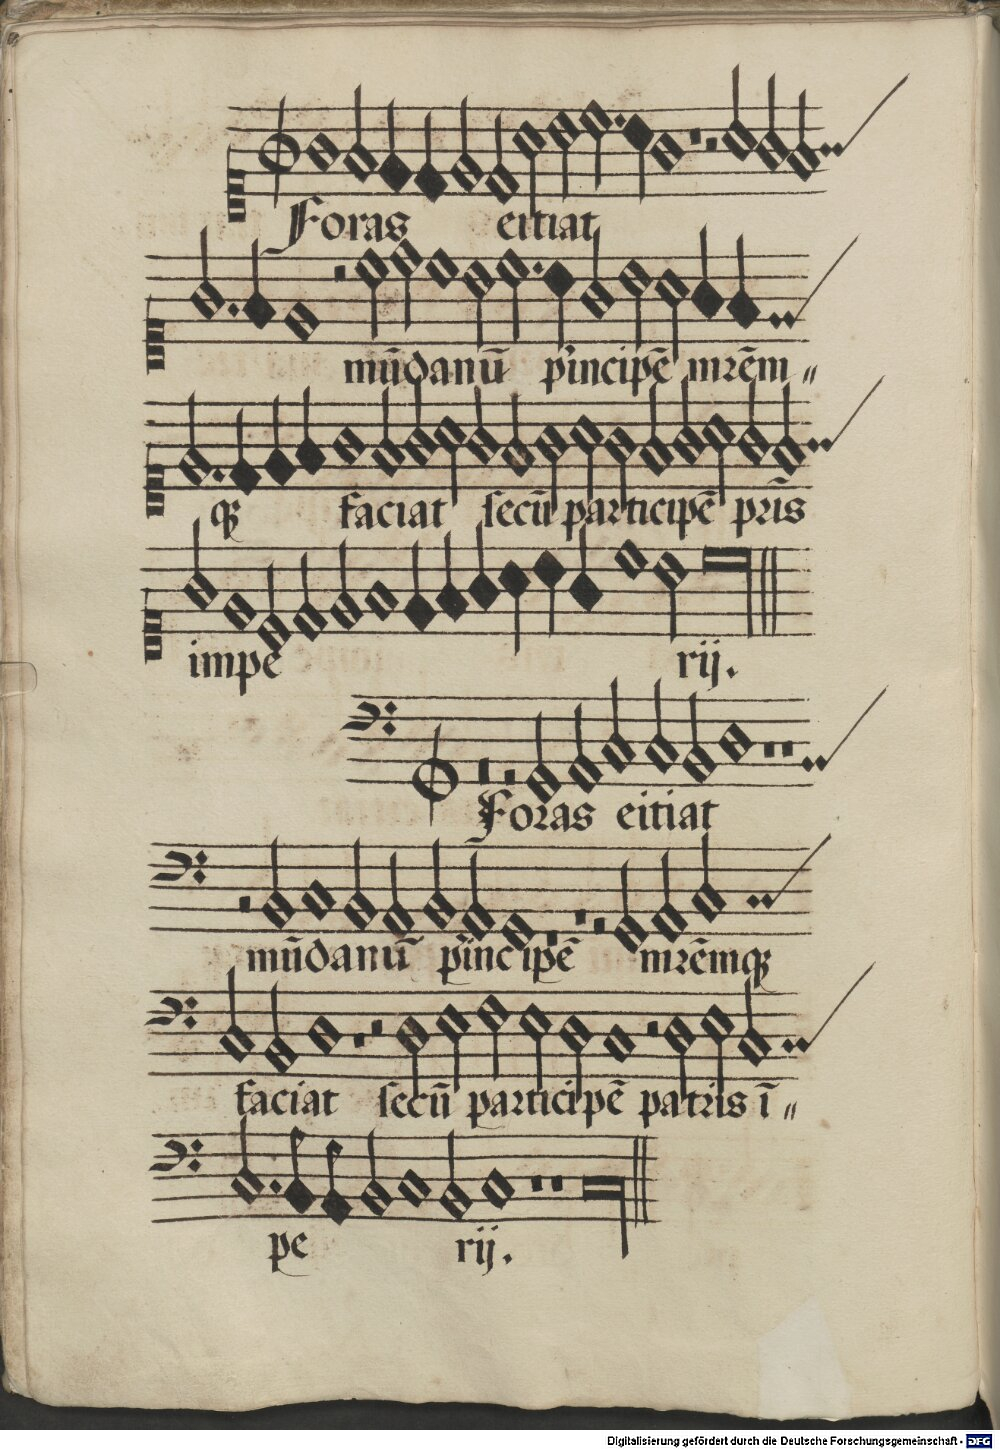 Foras eitiat
mūdanū principē nr̄em〃
qꝫ faciat secū participē pr̄is
impe rij.
Foras eitiat
mūdanū principē nr̄emqꝫ
faciat secū participē patris ī〃
pe rij.
Digitalisierung gefördert durch die Deutsche Forschungsgemeinschaft - DFG